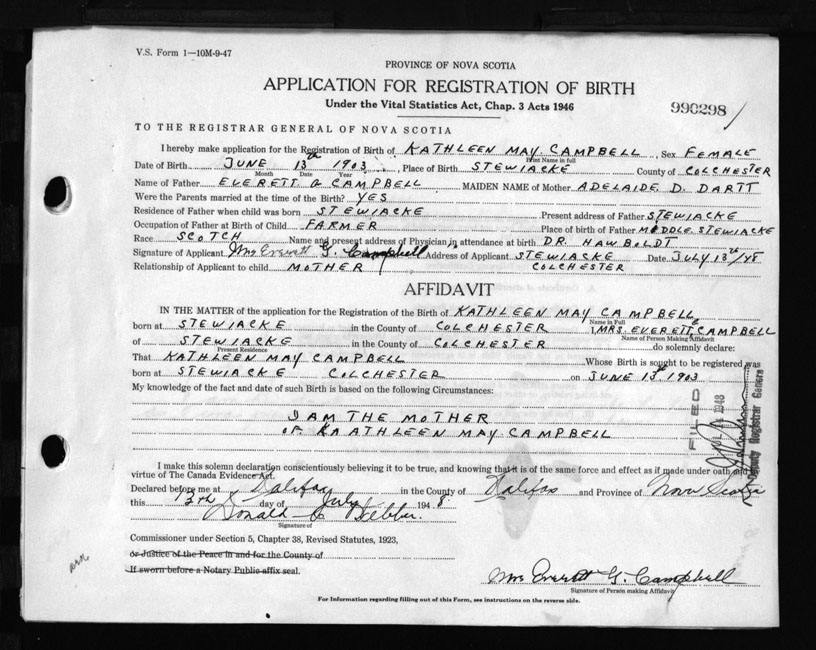 V.S. Form 1—10M-9-47
PROVINCE OF NOVA SCOTIA
APPLICATION FOR REGISTRATION OF BIRTH
Under the Vital Statistics Act, Chap. 3 Acts 1946
990298
TO THE REGISTRAR GENERAL OF NOVA SCOTIA
I hereby make application for the Registration of Birth of KATHLEEN MAY CAMPBELL, Sex FEMALE
Print Name in full
Date of Birth JUNE 13th 1903, Place of Birth STEWIACKE County of COLCHESTER
Month Date Year
Name of Father EVERETT G CAMPBELL MAIDEN NAME of Mother ADELAIDE D. DARTT
Were the Parents married at the time of the Birth? YES
Residence of Father when child was born STEWIACKE Present address of Father STEWIACKE
Occupation of Father at Birth of Child FARMER Place of birth of Father MIDDLE STEWIACKE
Race SCOTCH Name and present address of Physician in attendance at birth DR. HAWBOLDT
Signature of Applicant Mrs Everett G. Campbell Address of Applicant STEWIACKE Date JULY 13th/48
Relationship of Applicant to child MOTHER COLCHESTER
AFFIDAVIT
IN THE MATTER of the application for the Registration of the Birth of KATHLEEN MAY CAMPBELL
Name in Full
born at STEWIACKE in the County of COLCHESTER I, MRS. EVERETT G CAMPBELL
Name of Person Making Affidavit
of STEWIACKE in the County of COLCHESTER do solemnly declare:
Present Residence
That KATHLEEN MAY CAMPBELL Whose Birth is sought to be registered was
born at STEWIACKE COLCHESTER on JUNE 13th 1903
My knowledge of the fact and date of such Birth is based on the following Circumstances:
I AM THE MOTHER
OF KAATHLEEN MAY CAMPBELL
FILED
1948
Deputy Registrar General
I make this solemn declaration conscientiously believing it to be true, and knowing that it is of the same force and effect as if made under oath and
virtue of The Canada Evidence Act.
Declared before me at Halifax in the County of Halifax and Province of Nova Scotia
this 13th day of July 1948.
Donald Webber
Signature of
Commissioner under Section 5, Chapter 38, Revised Statutes, 1923,
or Justice of the Peace in and for the County of
If sworn before a Notary Public affix seal.
Mrs Everett G. Campbell
Signature of Person making Affidavit
For Information regarding filling out of this Form, see instructions on the reverse side.